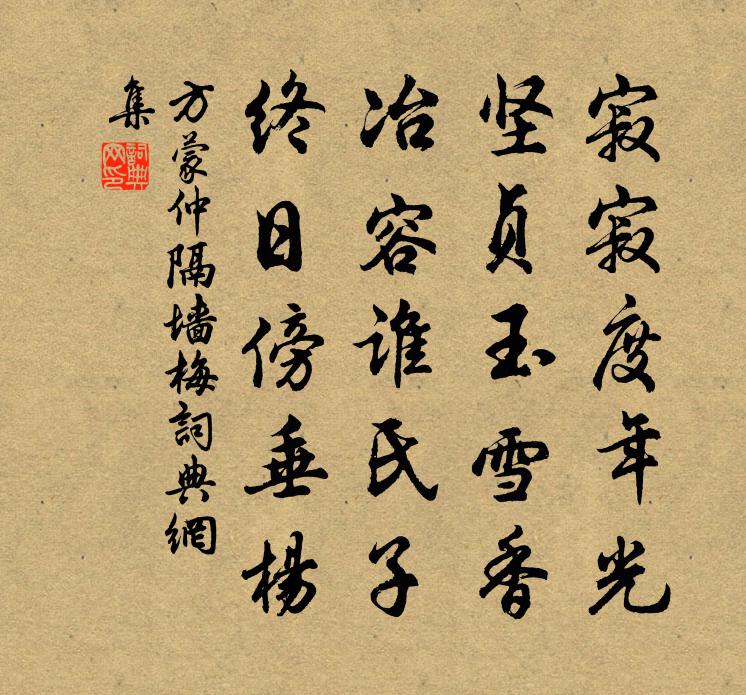 寂寂度年光
坚贞玉雪香
冶容谁氏子
终日傍垂杨
方蒙仲隔墙梅詞典網
集
詞典网印